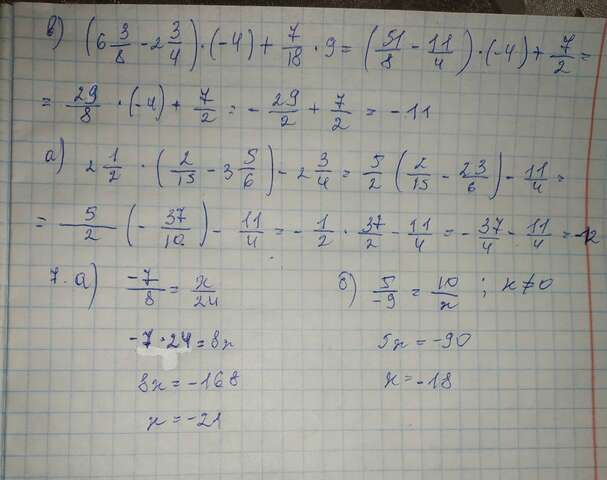 в) (6 3/8 - 2 3/4) · (-4) + 7/18 · 9 = (51/8 - 11/4) · (-4) + 7/2 =
= 29/8 · (-4) + 7/2 = - 29/2 + 7/2 = -11
а) 2 1/2 · (2/15 - 3 5/6) - 2 3/4 = 5/2 (2/15 - 23/6) - 11/4 =
= 5/2 (- 37/10) - 11/4 = - 1/2 · 37/2 - 11/4 = - 37/4 - 11/4 = -12
7. а) -7/8 = x/24
б) 5/-9 = 10/x ; x ≠ 0
-7 · 24 = 8x
5x = -90
8x = -168
x = -18
x = -21